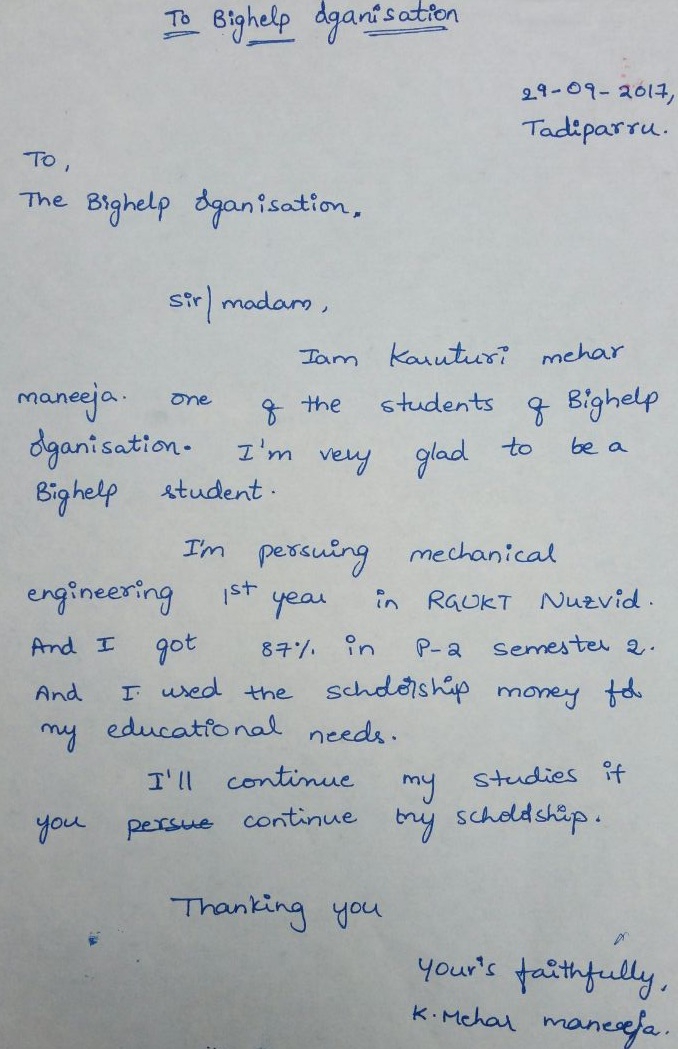 To Bighelp organisation
29-09-2017,
Tadiparru.
To,
The Bighelp organisation.
sir/madam,
Iam Karuturi mehar
maneeja. one of the students of Bighelp
organisation. I'm very glad to be a
Bighelp student.
I'm persuing mechanical
engineering 1st year in RGUKT Nuzvid.
And I got 87% in P-2 semester 2.
And I used the scholorship money for
my educational needs.
I'll continue my studies if
you persue continue my scholorship.
Thanking you
Your's faithfully,
K. Mehar maneeja.